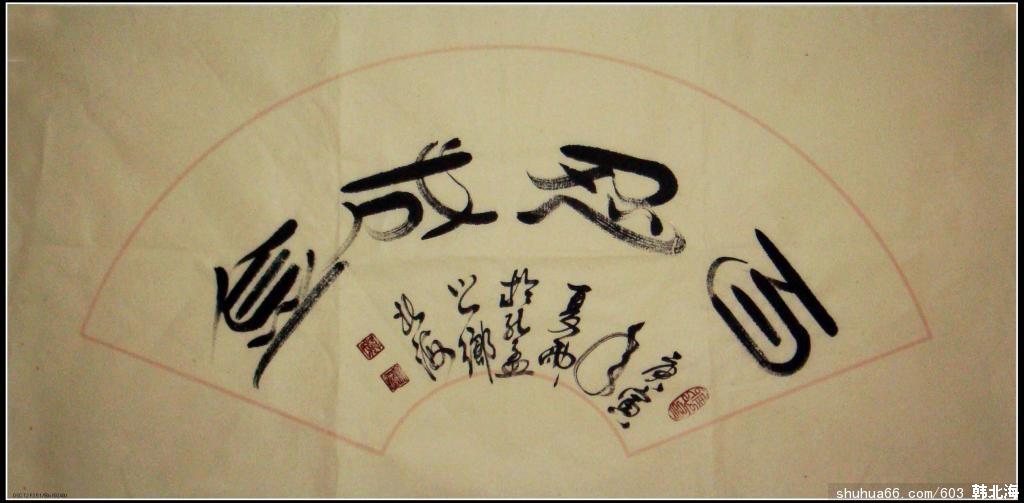 百忍成金
庚寅
年
夏
於孔孟
之鄉
北海
shuhua66.com/603 韩北海